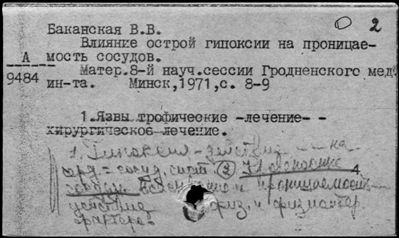 2
Баканская В.В.
Влияние острой гипоксии на проницае-
мость сосудов.
А
9484
Матер.8-й науч.сессии Гродненского мед.
ин-та. Минск,1971,с. 8-9
1.Язвы трофические -лечение- -
хирургическое лечение.
1. Гипоксия - действие на
серд.-сосуд. сист. 2
сосудов проницаемость
действие физ. и
факторов